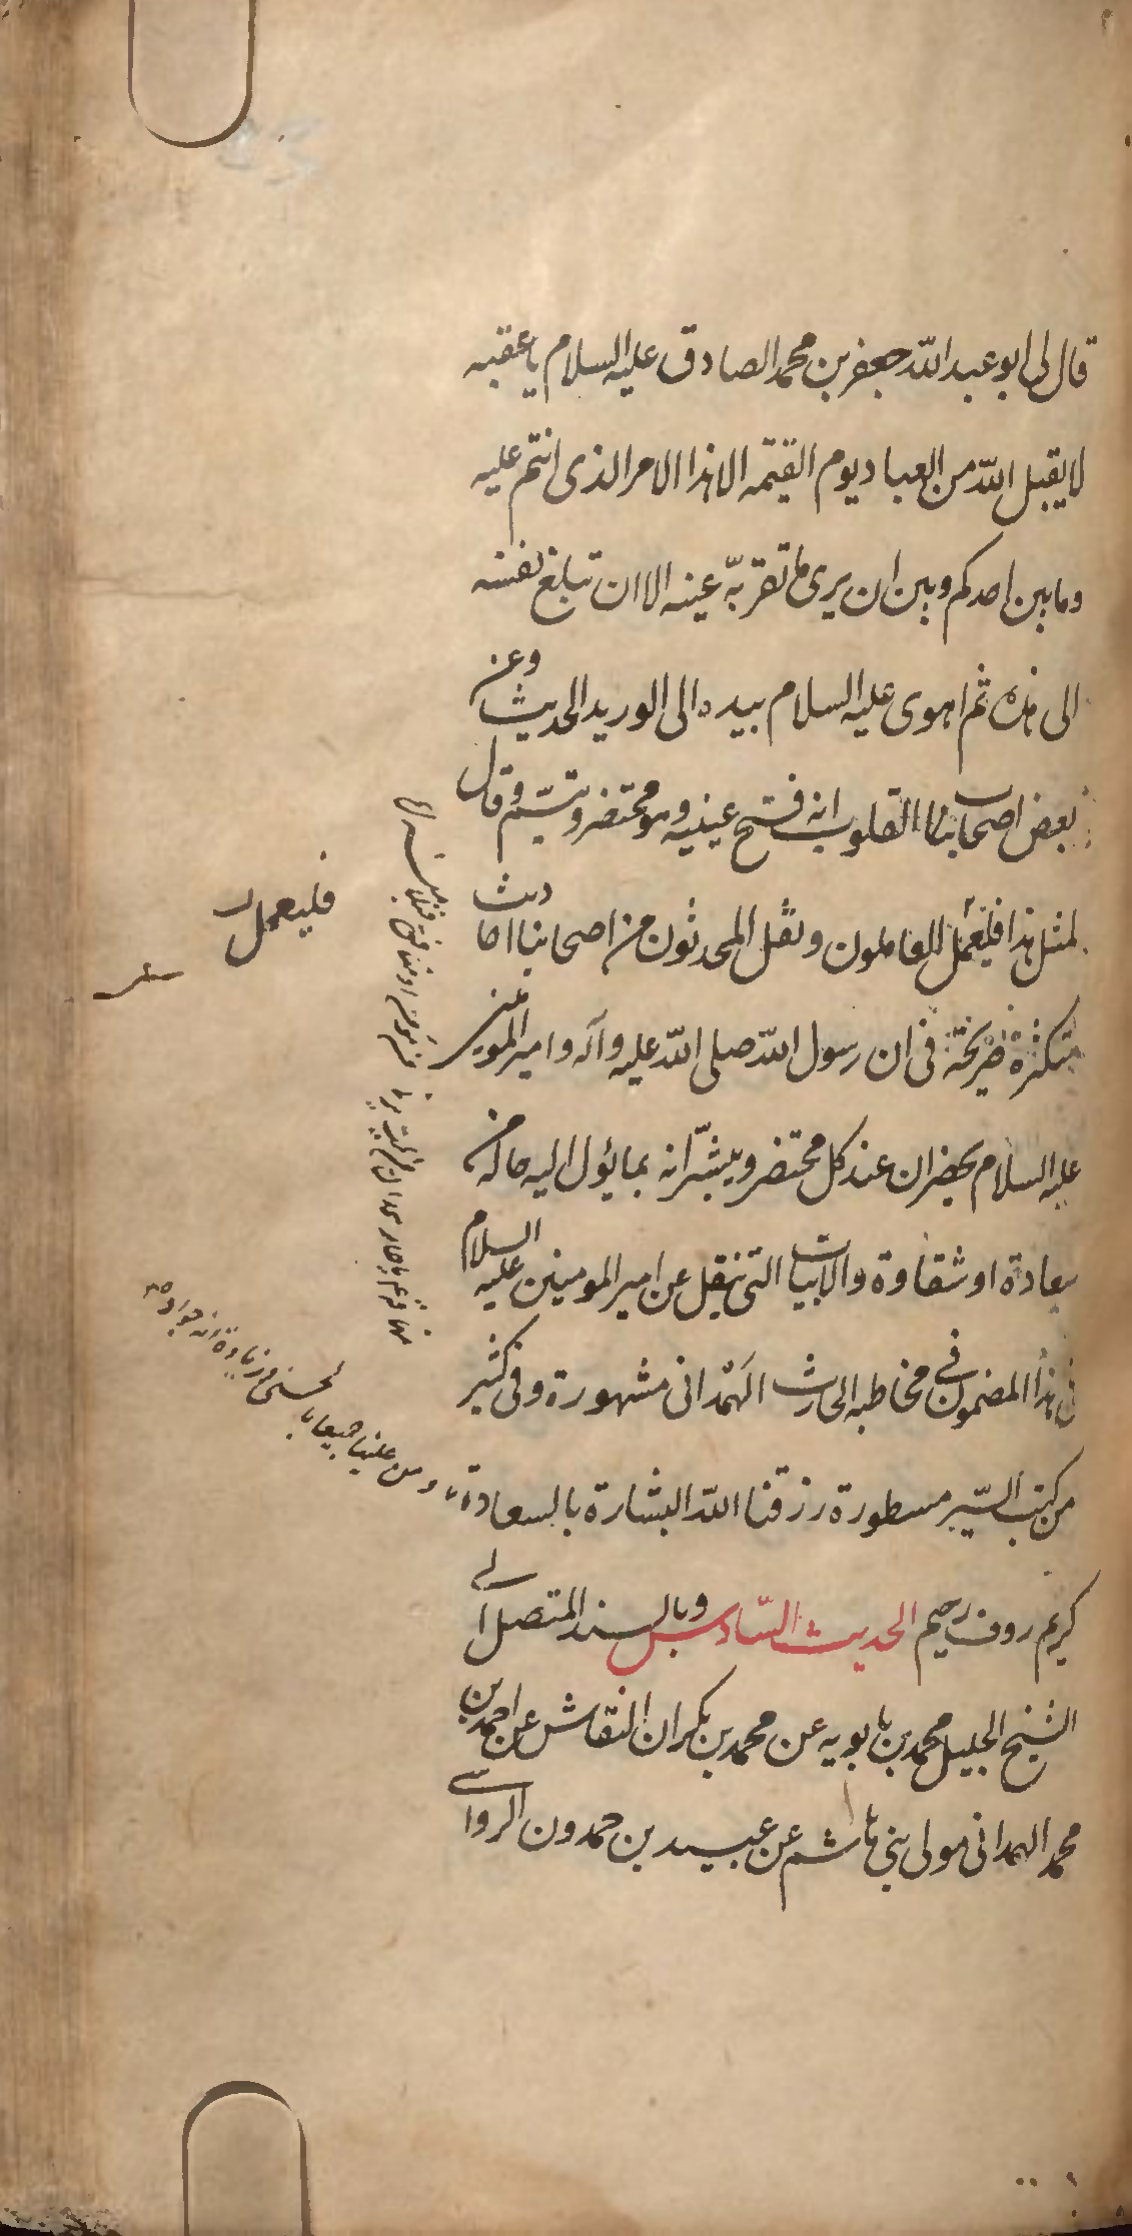 قال لی ابو عبد اللّه جعفر بن محمد الصادق علیه السلام یا عقبه
لا یقبل اللّه من العباد یوم القیمه الا هذا الامر الذی انتم علیه
وما بین احدکم وبین ان یری ما تقر بّه عینه الا ان تبلغ نفسه
الی هذه ثم اهوی علیه السلام بیده الی الورید الحدیث وعن
بعض اصحابنا القلوب انه فتح عینیه وهو محتضر وتبسّم وقال
لمثل هذا فلیعمل العاملون ونقل المحدثون من اصحابنا احادیث
متکثرة صریحة فی ان رسول اللّه صلی اللّه علیه وآله وامیر المومنین
علیه السلام یحضران عند کل محتضر ویبشّرانه بما یؤل الیه حاله من
سعادة او شقاوة والابیات التی ینقل عن امیر المومنین علیه السلام
فی هذا المضمون فی مخاطبه الحارث الهَمْدانی مشهورة وفی کثیر
من کتب السّیر مسطورة رزقنا اللّه البشارة بالسعادة
ومن علینا جمیعا با
لحسنی وزیادة انه جواد
کریم روف رحیم الحدیث السّادس وبالسند المتصل الی
الشیخ الجلیل محمد بن بابویه عن محمد بن بکران النقاش عن احمد بن
محمد الهمدانی مولی بنی هاشم عن عبید بن حمدون الرواسی
فلیعمل